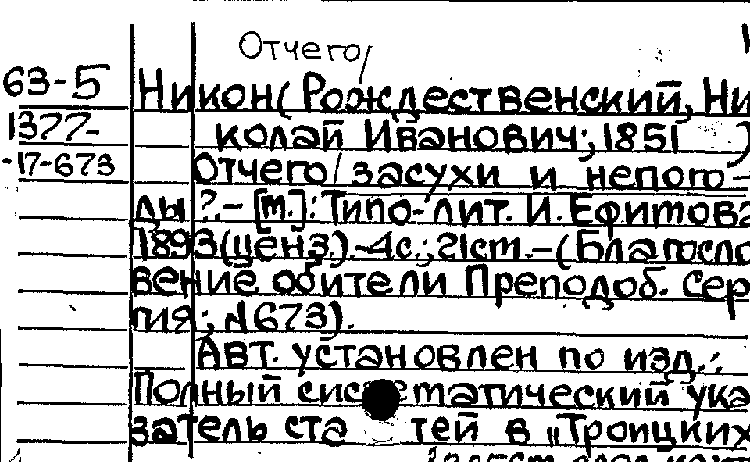 Отчего/
63-5 Никон(Рождественский, Ни
1377- колай Иванович; 1851 )
-17-673 Отчего/ засухи и непого-
ды?.- [м.]: Типо-лит. И. Ефимова
1893(ценз.).-4с.; 21см.-(Благосло
вение обители Преподоб. Сер
гия; №673).
Авт. установлен по изд.:
Полный систематический ука
затель статей в „Троицких